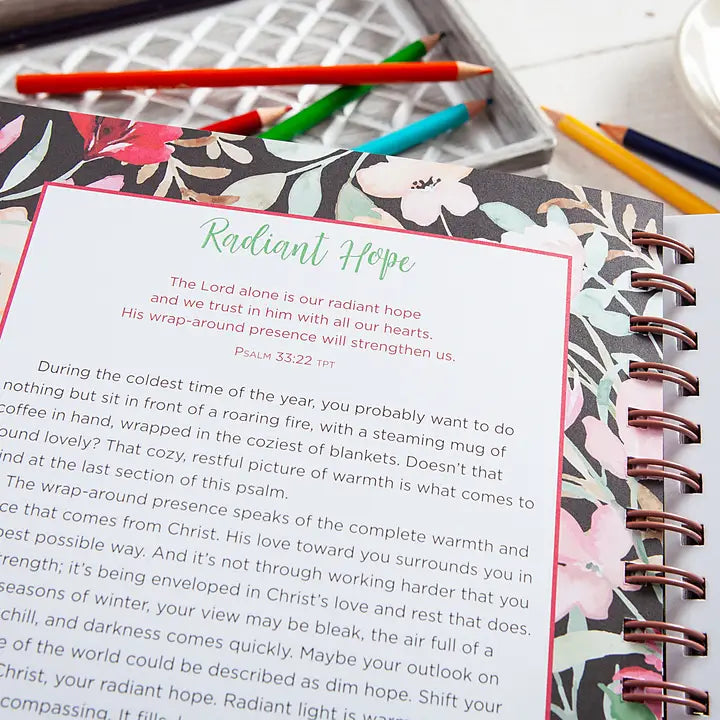 Radiant Hope
The Lord alone is our radiant hope
and we trust in him with all our hearts.
His wrap-around presence will strengthen us.
Psalm 33:22 TPT
During the coldest time of the year, you probably want to do
nothing but sit in front of a roaring fire, with a steaming mug of
coffee in hand, wrapped in the coziest of blankets. Doesn't that
ound lovely? That cozy, restful picture of warmth is what comes to
ind at the last section of this psalm.
The wrap-around presence speaks of the complete warmth and
ce that comes from Christ. His love toward you surrounds you in
best possible way. And it's not through working harder that you
rength; it's being enveloped in Christ's love and rest that does.
seasons of winter, your view may be bleak, the air full of a
chill, and darkness comes quickly. Maybe your outlook on
e of the world could be described as dim hope. Shift your
Christ, your radiant hope. Radiant light is warm
compassing. It fills